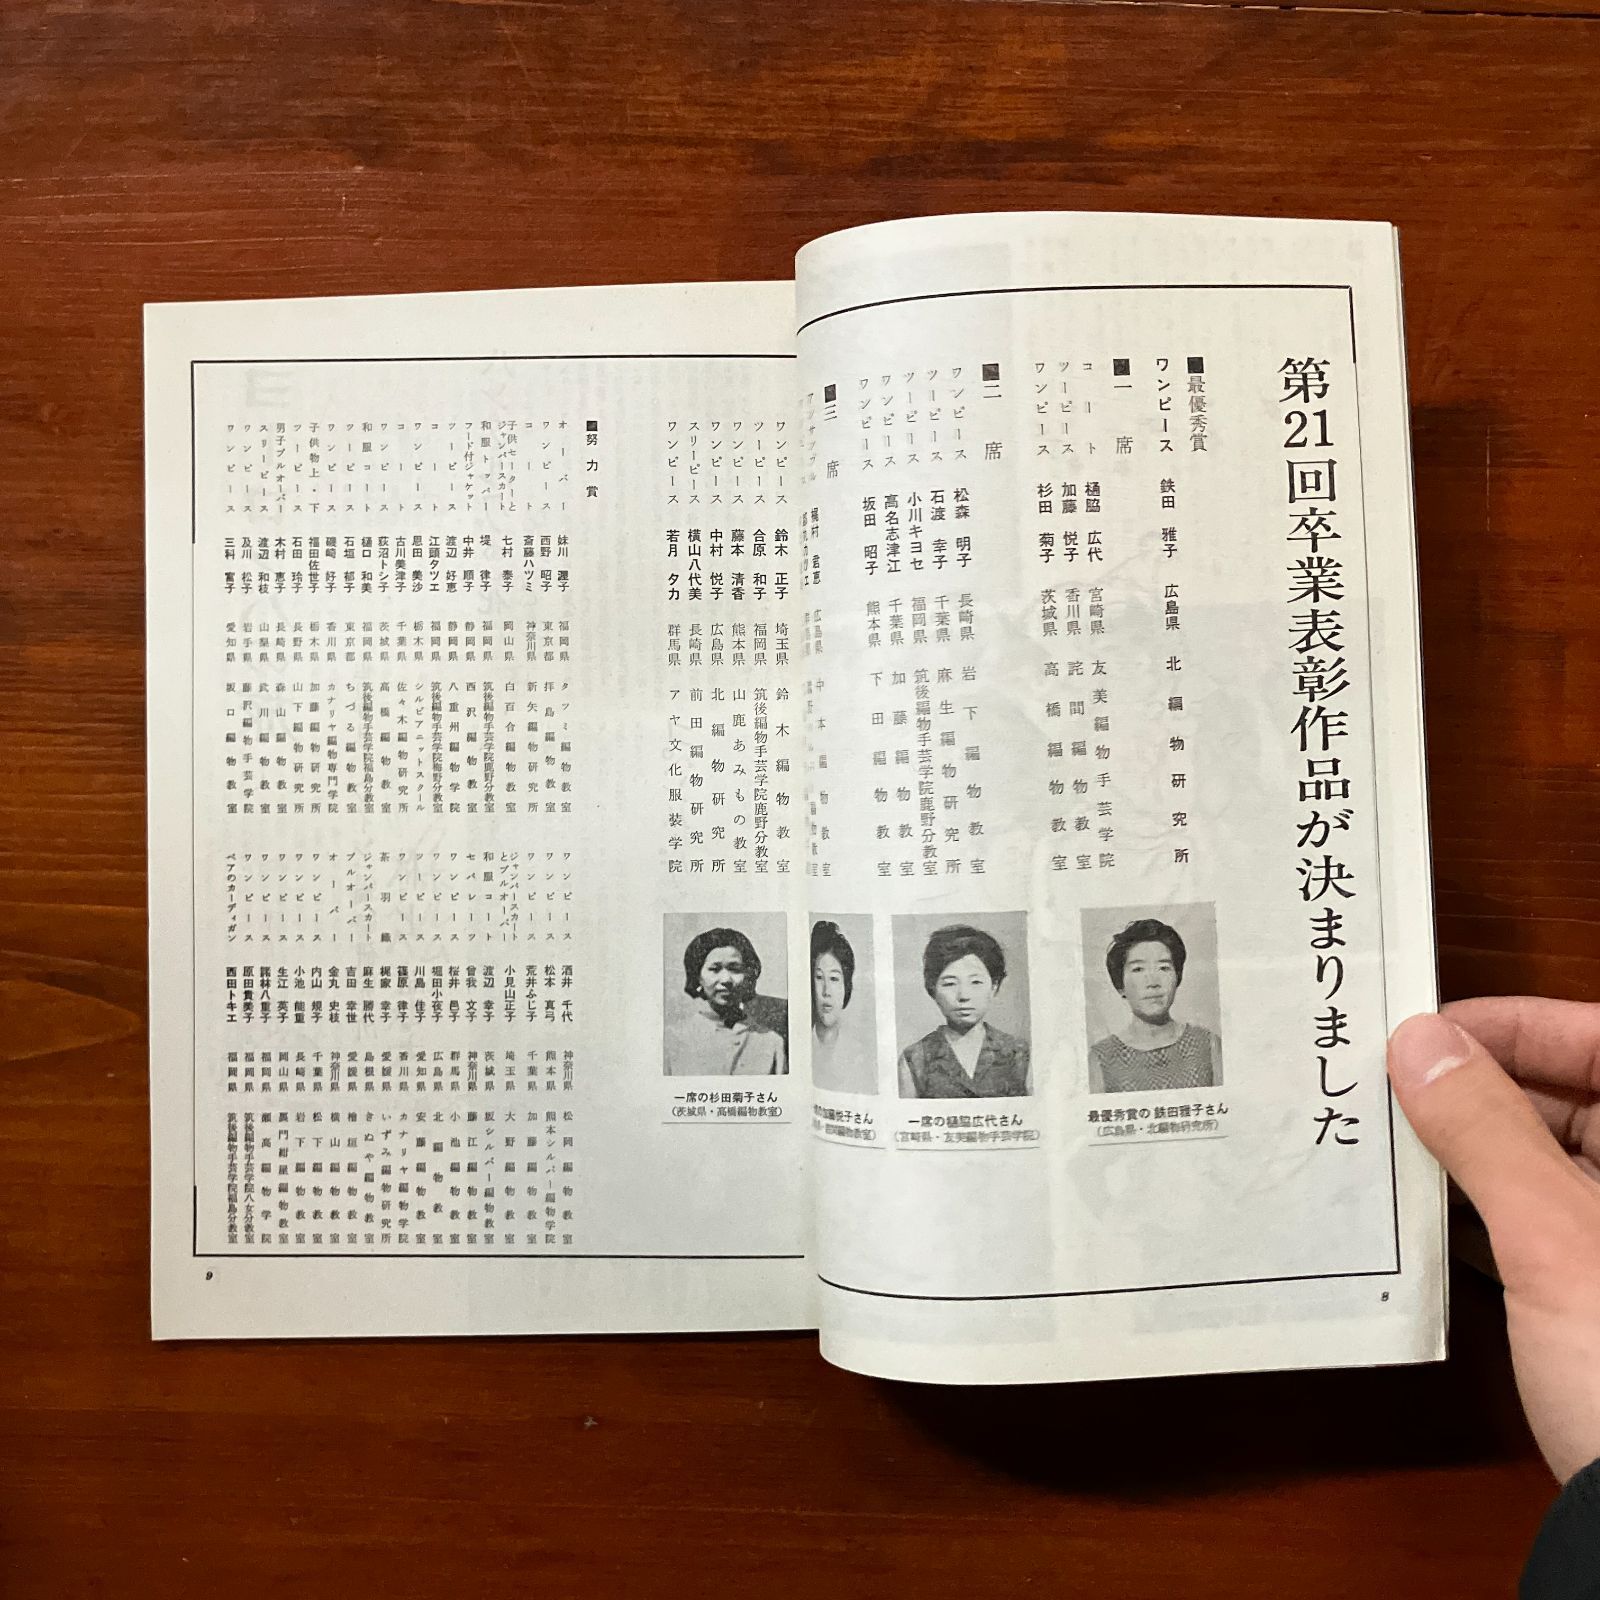 第21回卒業表彰作品が決まりました
■最優秀賞
ワンピース 鉄田 雅子 広島県 北編物研究所
■一席
コート 樋脇 広代 宮崎県 友美編物手芸学院
ツーピース 加藤 悦子 香川県 詫間編物教室
ワンピース 杉田 菊子 茨城県 高橋編物教室
■二席
ワンピース 松森 明子 長崎県 岩下編物教室
ツーピース 石渡 幸子 千葉県 麻生編物研究所
ツーピース 小川キヨセ 福岡県 筑後編物手芸学院鹿野分教室
ワンピース 高名志津江 千葉県 加藤編物教室
ワンピース 坂田 昭子 熊本県 下田編物教室
■三席
アンサンブル 梶村 君恵 広島県 中本編物教室
ワンピース 鈴木 正子 埼玉県 鈴木編物教室
ツーピース 合原 和子 福岡県 筑後編物手芸学院鹿野分教室
ワンピース 藤本 清香 熊本県 山鹿あみもの教室
ワンピース 中村 悦子 広島県 北編物研究所
スリーピース 横山八代美 長崎県 前田編物研究所
ワンピース 若月 タカ 群馬県 アヤ文化服装学院
最優秀賞の 鉄田雅子さん
(広島県・北編物研究所)
一席の樋脇広代さん
(宮崎県・友美編物手芸学院)
悦子さん
編物教室)
一席の杉田菊子さん
(茨城県・高橋編物教室)
■努力賞
オーバー 妹川 渥子 福岡県 タツミ編物教室
ワンピース 西野 昭子 東京都 拝島編物教室
コート 斎藤ハツミ 神奈川県 新矢編物研究所
子供セーターとジャンパースカート 七村 泰子 岡山県 白百合編物教室
和服トッパー 堤 律子 福岡県 筑後編物手芸学院鹿野分教室
フード付ジャケット 中井 順子 静岡県 西沢編物教室
ツーピース 渡辺 好恵 静岡県 八重州編物学院
コート 江頭タツエ 福岡県 筑後編物手芸学院梅野分教室
ワンピース 恩田 美沙 栃木県 シルビアニットスクール
コート 古川美津子 千葉県 佐々木編物研究所
ワンピース 荻沼トシ子 茨城県 高橋編物教室
和服コート 樋口 和美 福岡県 筑後編物手芸学院福島分教室
ツーピース 石垣 郁子 東京都 ちづる編物教室
ワンピース 磯崎 好子 香川県 カナリヤ編物専門学院
子供物上・下 福田佐世子 栃木県 加藤編物研究所
ツーピース 石田 玲子 長野県 山下編物研究所
男子プルオーバー 木村 恵子 長崎県 森山編物教室
スリーピース 渡辺 和枝 山梨県 武川編物教室
ワンピース 及川 松子 岩手県 藤沢編物手芸学院
ワンピース 三科 富子 愛知県 坂口編物教室
ワンピース 酒井 千代 神奈川県 松岡編物教室
ワンピース 松本 真弓 熊本県 熊本シルバー編物学院
ワンピース 荒井ふじ子 千葉県 加藤編物教室
ジャンパースカートとプルオーバー 小見山正子 埼玉県 大野編物教室
和服コート 渡辺 幸子 茨城県 阪シルバー編物教室
セパレーツ 曾我 文子 神奈川県 藤江編物教室
ワンピース 桜井 邑子 群馬県 小池編物教室
ワンピース 堀田小夜子 広島県 北編物教室
ツーピース 川島 佳子 愛知県 安藤編物教室
ワンピース 篠原 律子 香川県 カナリヤ編物学院
茶羽織 梶家 幸子 愛媛県 いずみ編物研究所
ジャンパースカート 麻生 勝代 島根県 きぬや編物教室
プルオーバー 吉田 幸世 愛媛県 檜垣編物教室
オーバー 金丸 史枝 神奈川県 横山編物教室
ワンピース 内山 規子 千葉県 松下編物教室
ワンピース 小池 能重 長崎県 岩下編物教室
ワンピース 生江 英子 岡山県 裏門紺屋編物教室
ワンピース 諸林八重子 福岡県 瀬高編物学院
ワンピース 原田貴美子 福岡県 筑後編物手芸学院八女分教室
ペアのカーディガン 西田トキエ 福岡県 筑後編物手芸学院福島分教室
8
9